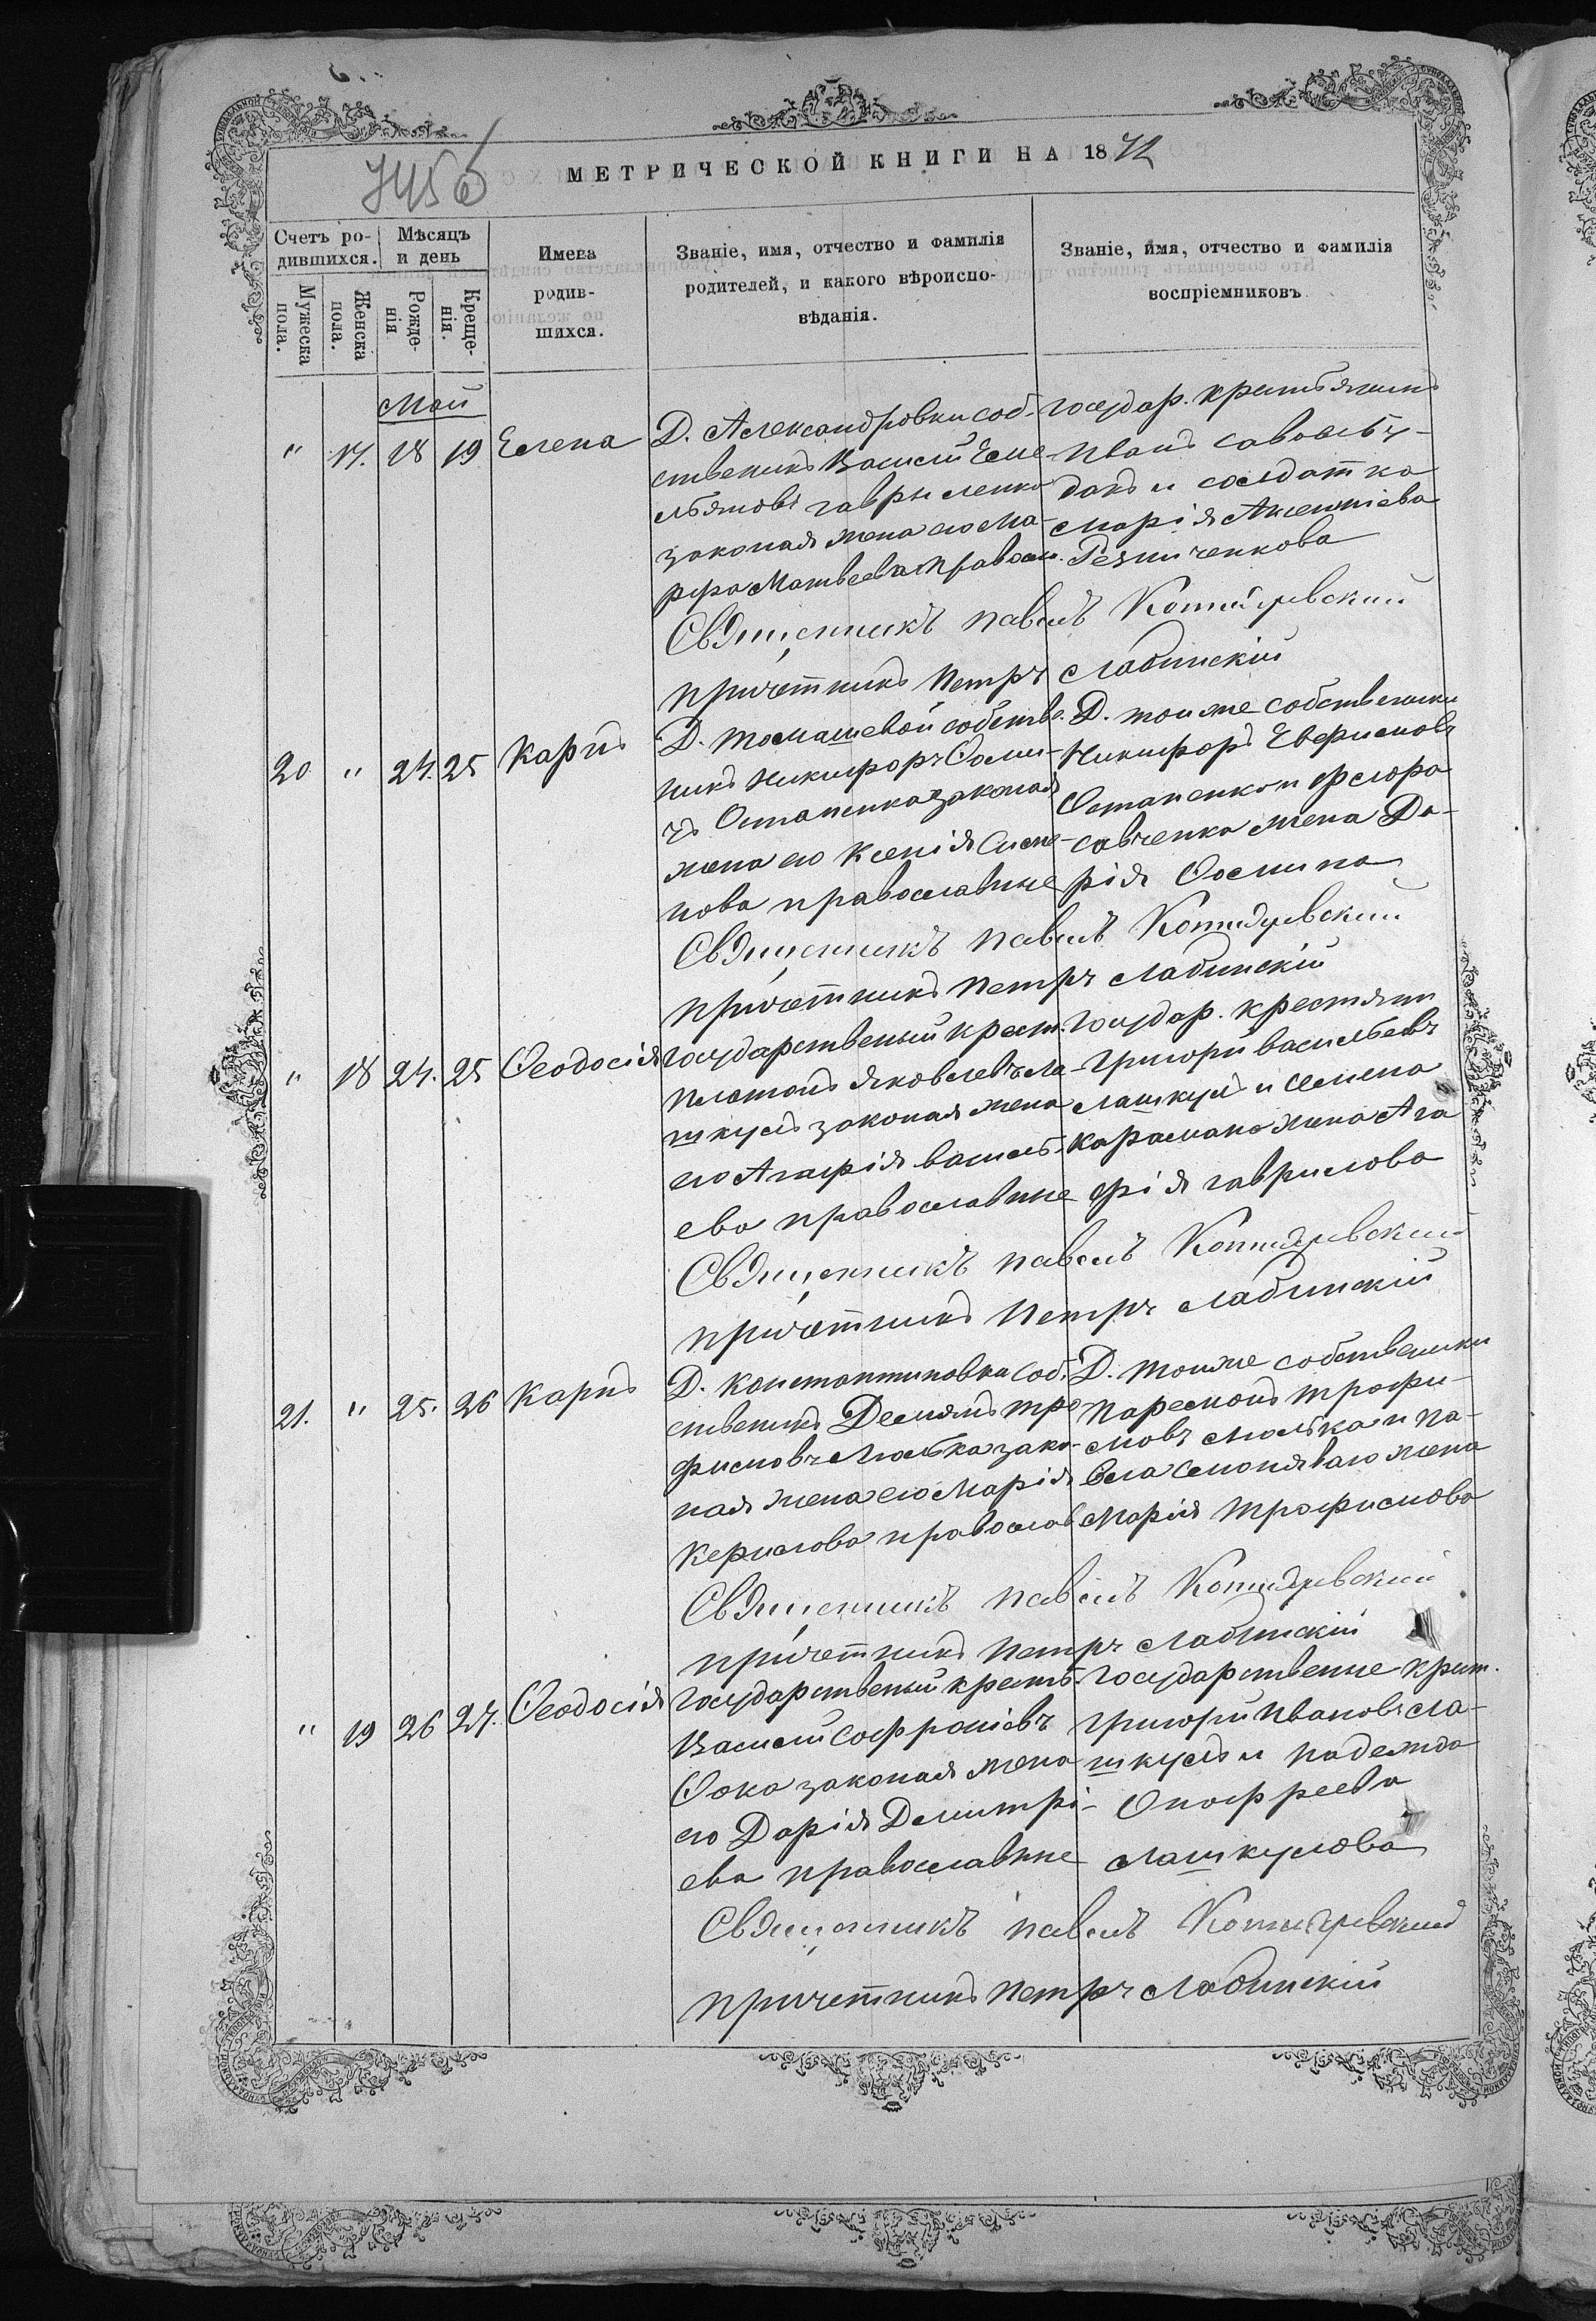 745б
МЕТРИЧЕСКОЙ КНИГИ НА 1872
Счетъ ро-
дившихся.
Мѣсяцъ
и день
Имена
родив-
шихся.
Званіе, имя, отчество и фамилія
родителей, и какого вѣроиспо-
вѣданія.
Званіе, имя, отчество и фамилія
воспріемниковъ
Мужеска
пола.
Женска
пола.
Рожде-
нія
Креще-
нія.
Май
" 17. 18 19 Елена
Д. Александровки соб-
ственикъ Василій Еме-
льяновъ Гавриленко
законая жена его Ма-
рфа Матвеева Правосл.
Государ. крестьянинъ
Иванъ
и солдатка
Марія Аксентіева
Резниченкова
Священникъ Павелъ
Причетникъ Петръ Лабинскій
20 " 24. 25 Карпъ
Д. Томашевой собстве-
никъ Никифоръ
Остапенко законая
жена его Ксенія Симо-
нова православные
Д. тоиже собственики
Никифоръ Евфимовъ
Остапенко и Флора
Савченка жена Да-
рія Осипа
Священникъ Павелъ
Причетникъ Петръ Лабинскій
" 18 24. 25 Феодосія
Государственый крест.
Платонъ Яковлевъ Ла-
шкулъ законая жена
его Агафія Василь-
ева православные
Государ. крестянин
Григори Васильевъ
Лашкулъ и Семена
Карамана жена Ага
фія Гаврилова
Священникъ Павелъ
Причетникъ Петръ Лабинскій
21. " 25. 26 Карпъ
Д. Константиновки соб.
ственикъ Демянъ Тро
фимовъ Люлька зако-
ная жена его Марія
Кирилова православ
Д. тоиже собственики
Парфмонъ Трофи-
мовъ Люлька и Па-
вла жена
Марія Трофимова
Священникъ Павелъ
Причетникъ Петръ Лабинскій
" 19 26 27. Феодосія
Государственый кресть.
Василій Софроніевъ
Сока законая жена
его Дарія Димитрі-
ева православные
Государственые крест.
Григори Ивановъ Ла-
шкулъ и Надежда
Онофреева
Лашкулова
Священникъ Павелъ
Причетникъ Петръ Лабинскій